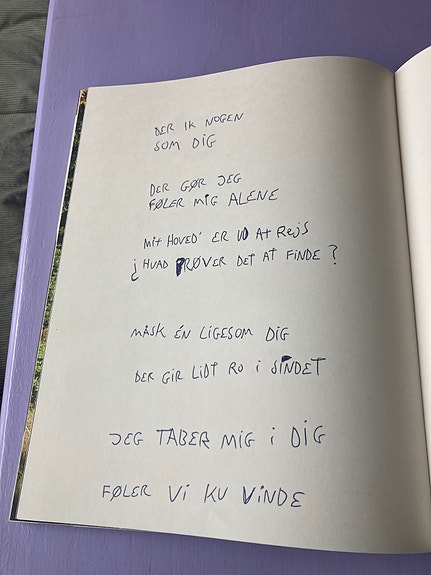 DER IK NOGEN
SOM DIG
DER GØR JEG
FØLER MIG ALENE
Mit HOVED' ER UD At Rejs
¿ HVAD PRØVER DET AT FINDE ?
MÅSK ÉN LIGESOM DIG
DER GIR LIDT RO i SINDET
JEG TABER MIG i DIG
FØLER Vi KU VINDE